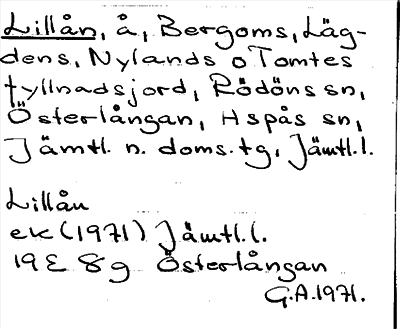 Lillån, å, Bergoms, Läg-
dens, Nylands o Tomtes
fyllnadsjord, Rödöns sn,
Österlångan, Hspås sn,
Jämtl. n. doms. tg, Jämtl. l.
Lillån
ek (1971) Jämtl. l.
19E 8g Österlångan
G.A. 1971.